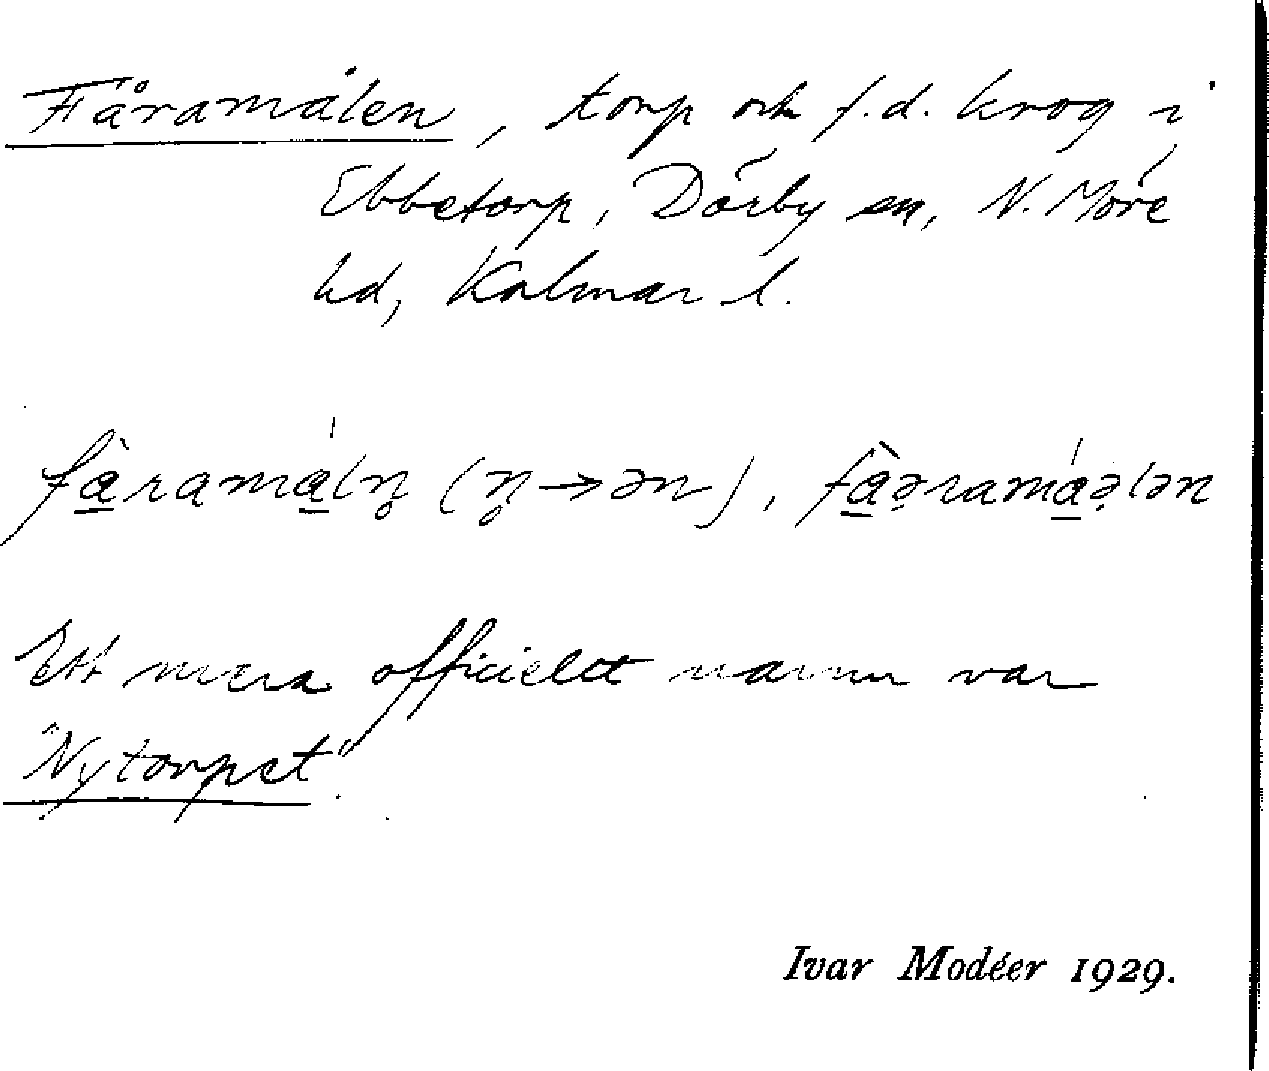 Fåramålen, torp och f.d. krog i
Ebbetorp, Dörby sn, N. Möre
hd, Kalmar l.
fà̲rama̲̍ln̥ (n̥→ən), fà̲ə̣rama̲̍ə̣lən
Ett mera officiellt namn var
"Nytorpet".
Ivar Modéer 1929.